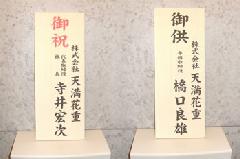 御祝
株式会社 天満花重
代表取締役
寺井宏次
御供
株式会社 天満花重
橋口良雄